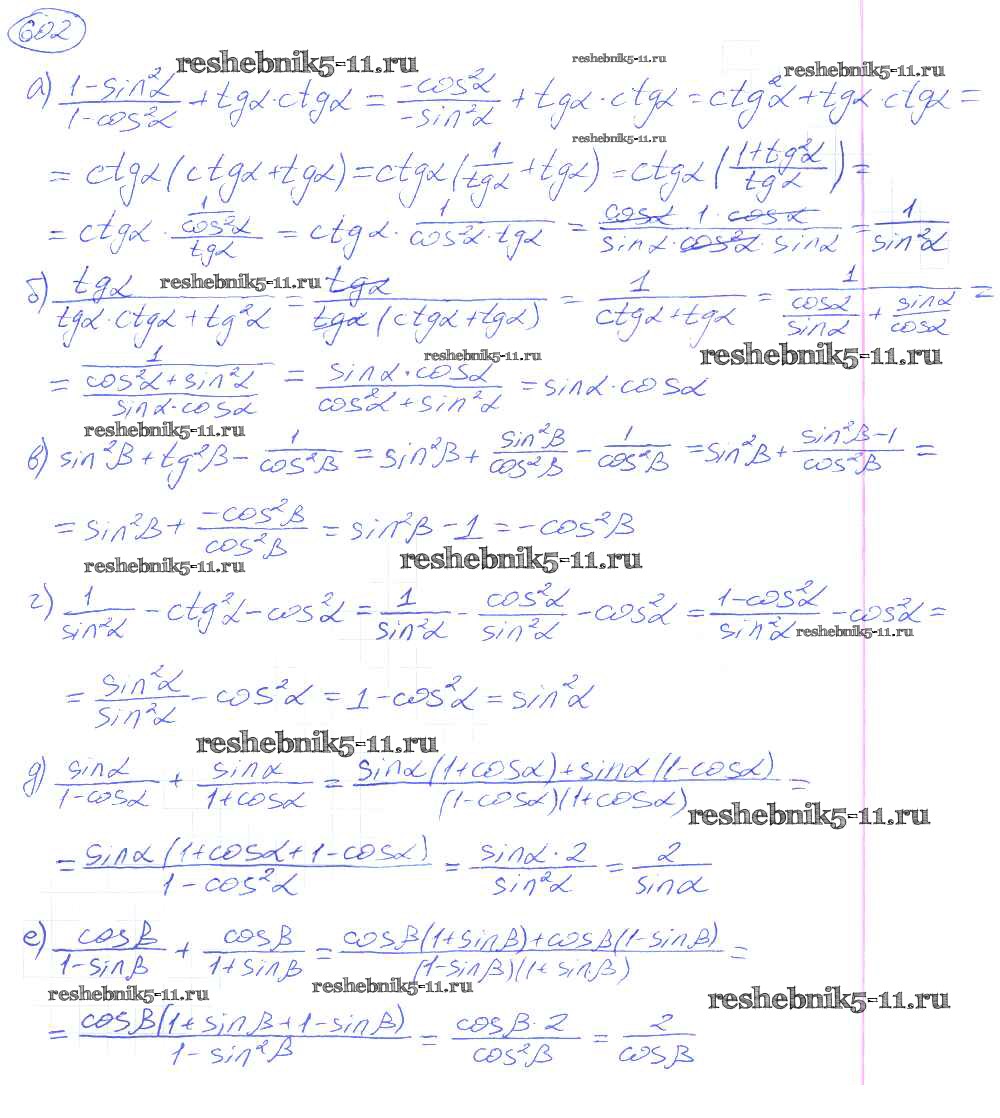 602
reshebnik5-11.ru reshebnik5-11.ru reshebnik5-11.ru
а) (1-sin²α)/(1-cos²α) + tgα·ctgα = (-cos²α)/(-sin²α) + tgα·ctgα = ctg²α + tgα·ctgα =
reshebnik5-11.ru
= ctgα(ctgα+tgα) = ctgα(1/tgα + tgα) = ctgα((1+tg²α)/tgα) =
= ctgα · (1/cos²α)/tgα = ctgα · 1/(cos²α·tgα) = (cosα·1·cosα)/(sinα·cos²α·sinα) = 1/sin²α
reshebnik5-11.ru
б) tgα/(tgα·ctgα+tg²α) = tgα/(tgα(ctgα+tgα)) = 1/(ctgα+tgα) = 1/(cosα/sinα + sinα/cosα) =
reshebnik5-11.ru reshebnik5-11.ru
= 1/((cos²α+sin²α)/(sinα·cosα)) = (sinα·cosα)/(cos²α+sin²α) = sinα·cosα
reshebnik5-11.ru
в) sin²β + tg²β - 1/cos²β = sin²β + sin²β/cos²β - 1/cos²β = sin²β + (sin²β-1)/cos²β =
= sin²β + (-cos²β)/cos²β = sin²β - 1 = -cos²β
reshebnik5-11.ru reshebnik5-11.ru
г) 1/sin²α - ctg²α - cos²α = 1/sin²α - cos²α/sin²α - cos²α = (1-cos²α)/sin²α - cos²α =
reshebnik5-11.ru
= sin²α/sin²α - cos²α = 1 - cos²α = sin²α
reshebnik5-11.ru
д) sinα/(1-cosα) + sinα/(1+cosα) = (sinα(1+cosα)+sinα(1-cosα))/((1-cosα)(1+cosα)) =
reshebnik5-11.ru
= (sinα(1+cosα+1-cosα))/(1-cos²α) = (sinα·2)/sin²α = 2/sinα
е) cosβ/(1-sinβ) + cosβ/(1+sinβ) = (cosβ(1+sinβ)+cosβ(1-sinβ))/((1-sinβ)(1+sinβ)) =
reshebnik5-11.ru reshebnik5-11.ru reshebnik5-11.ru
= (cosβ(1+sinβ+1-sinβ))/(1-sin²β) = (cosβ·2)/cos²β = 2/cosβ